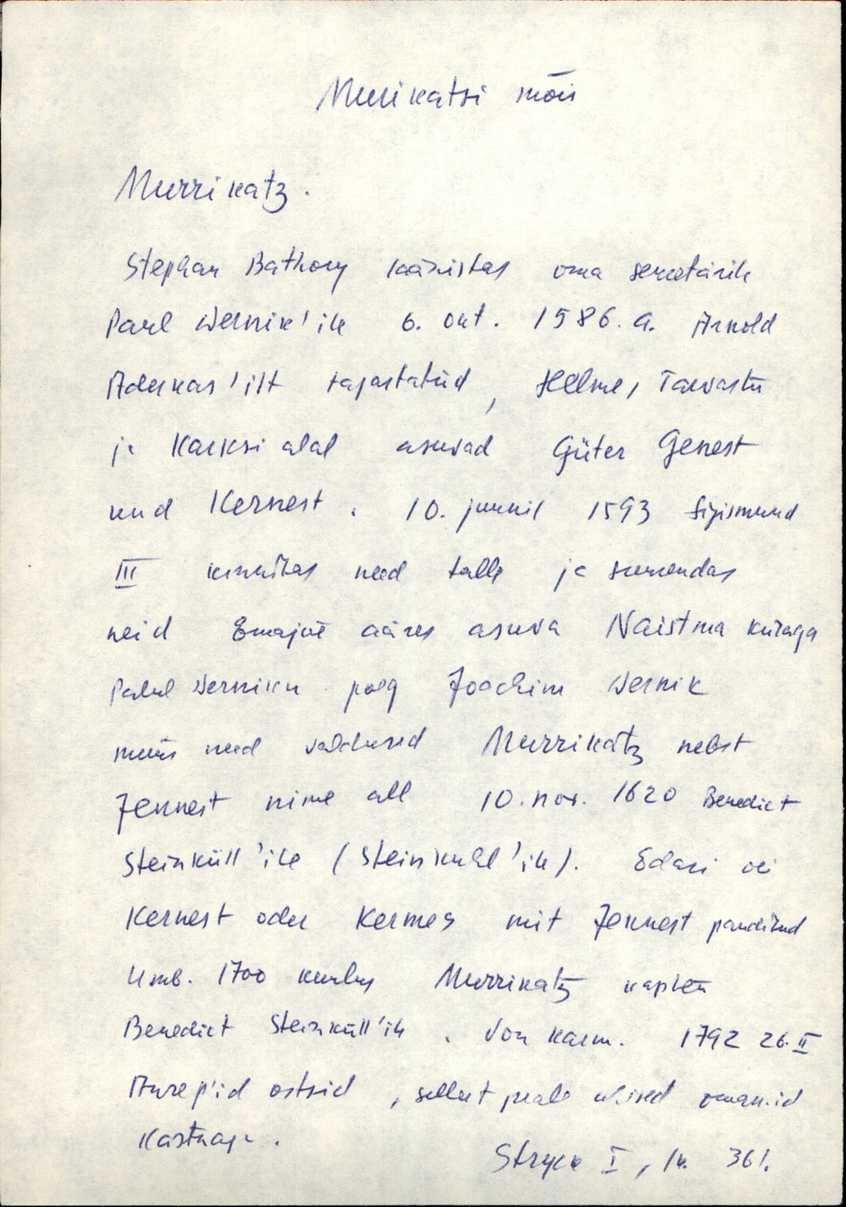 Murikatsi mõis
Murrikatz.
Stephan Bathory läänistas oma sekretärile
Paul Wernik'ile 6. okt. 1586. a. Arnold
Aderkas'ilt tagastatud, Helme, Tarvastu
ja Karksi alal asuvad Güter Genest
und Kernest. 10. juunil 1593 Sigismund
III kinnitas need talle ja suurendas
neid Emajõe ääres asuva Naistma külaga
Paul Werniku poeg Joachim Wernik
müüs need valdused Murrikatz nebst
Jennest nime all 10. nov. 1620 Benedict
Steinküll'ile (Steinkuhl'ile). Edasi oli
Kernest oder Kermes mit Jennest panditud
Umb. 1700 kuulus Murrikatz kapten
Benedict Steinküll'ile. Von Karm. 1792 26. II
Anrep'id ostsid, sellest peale ühised omanid
Kärstnaga.
Stryck I, lk. 361.